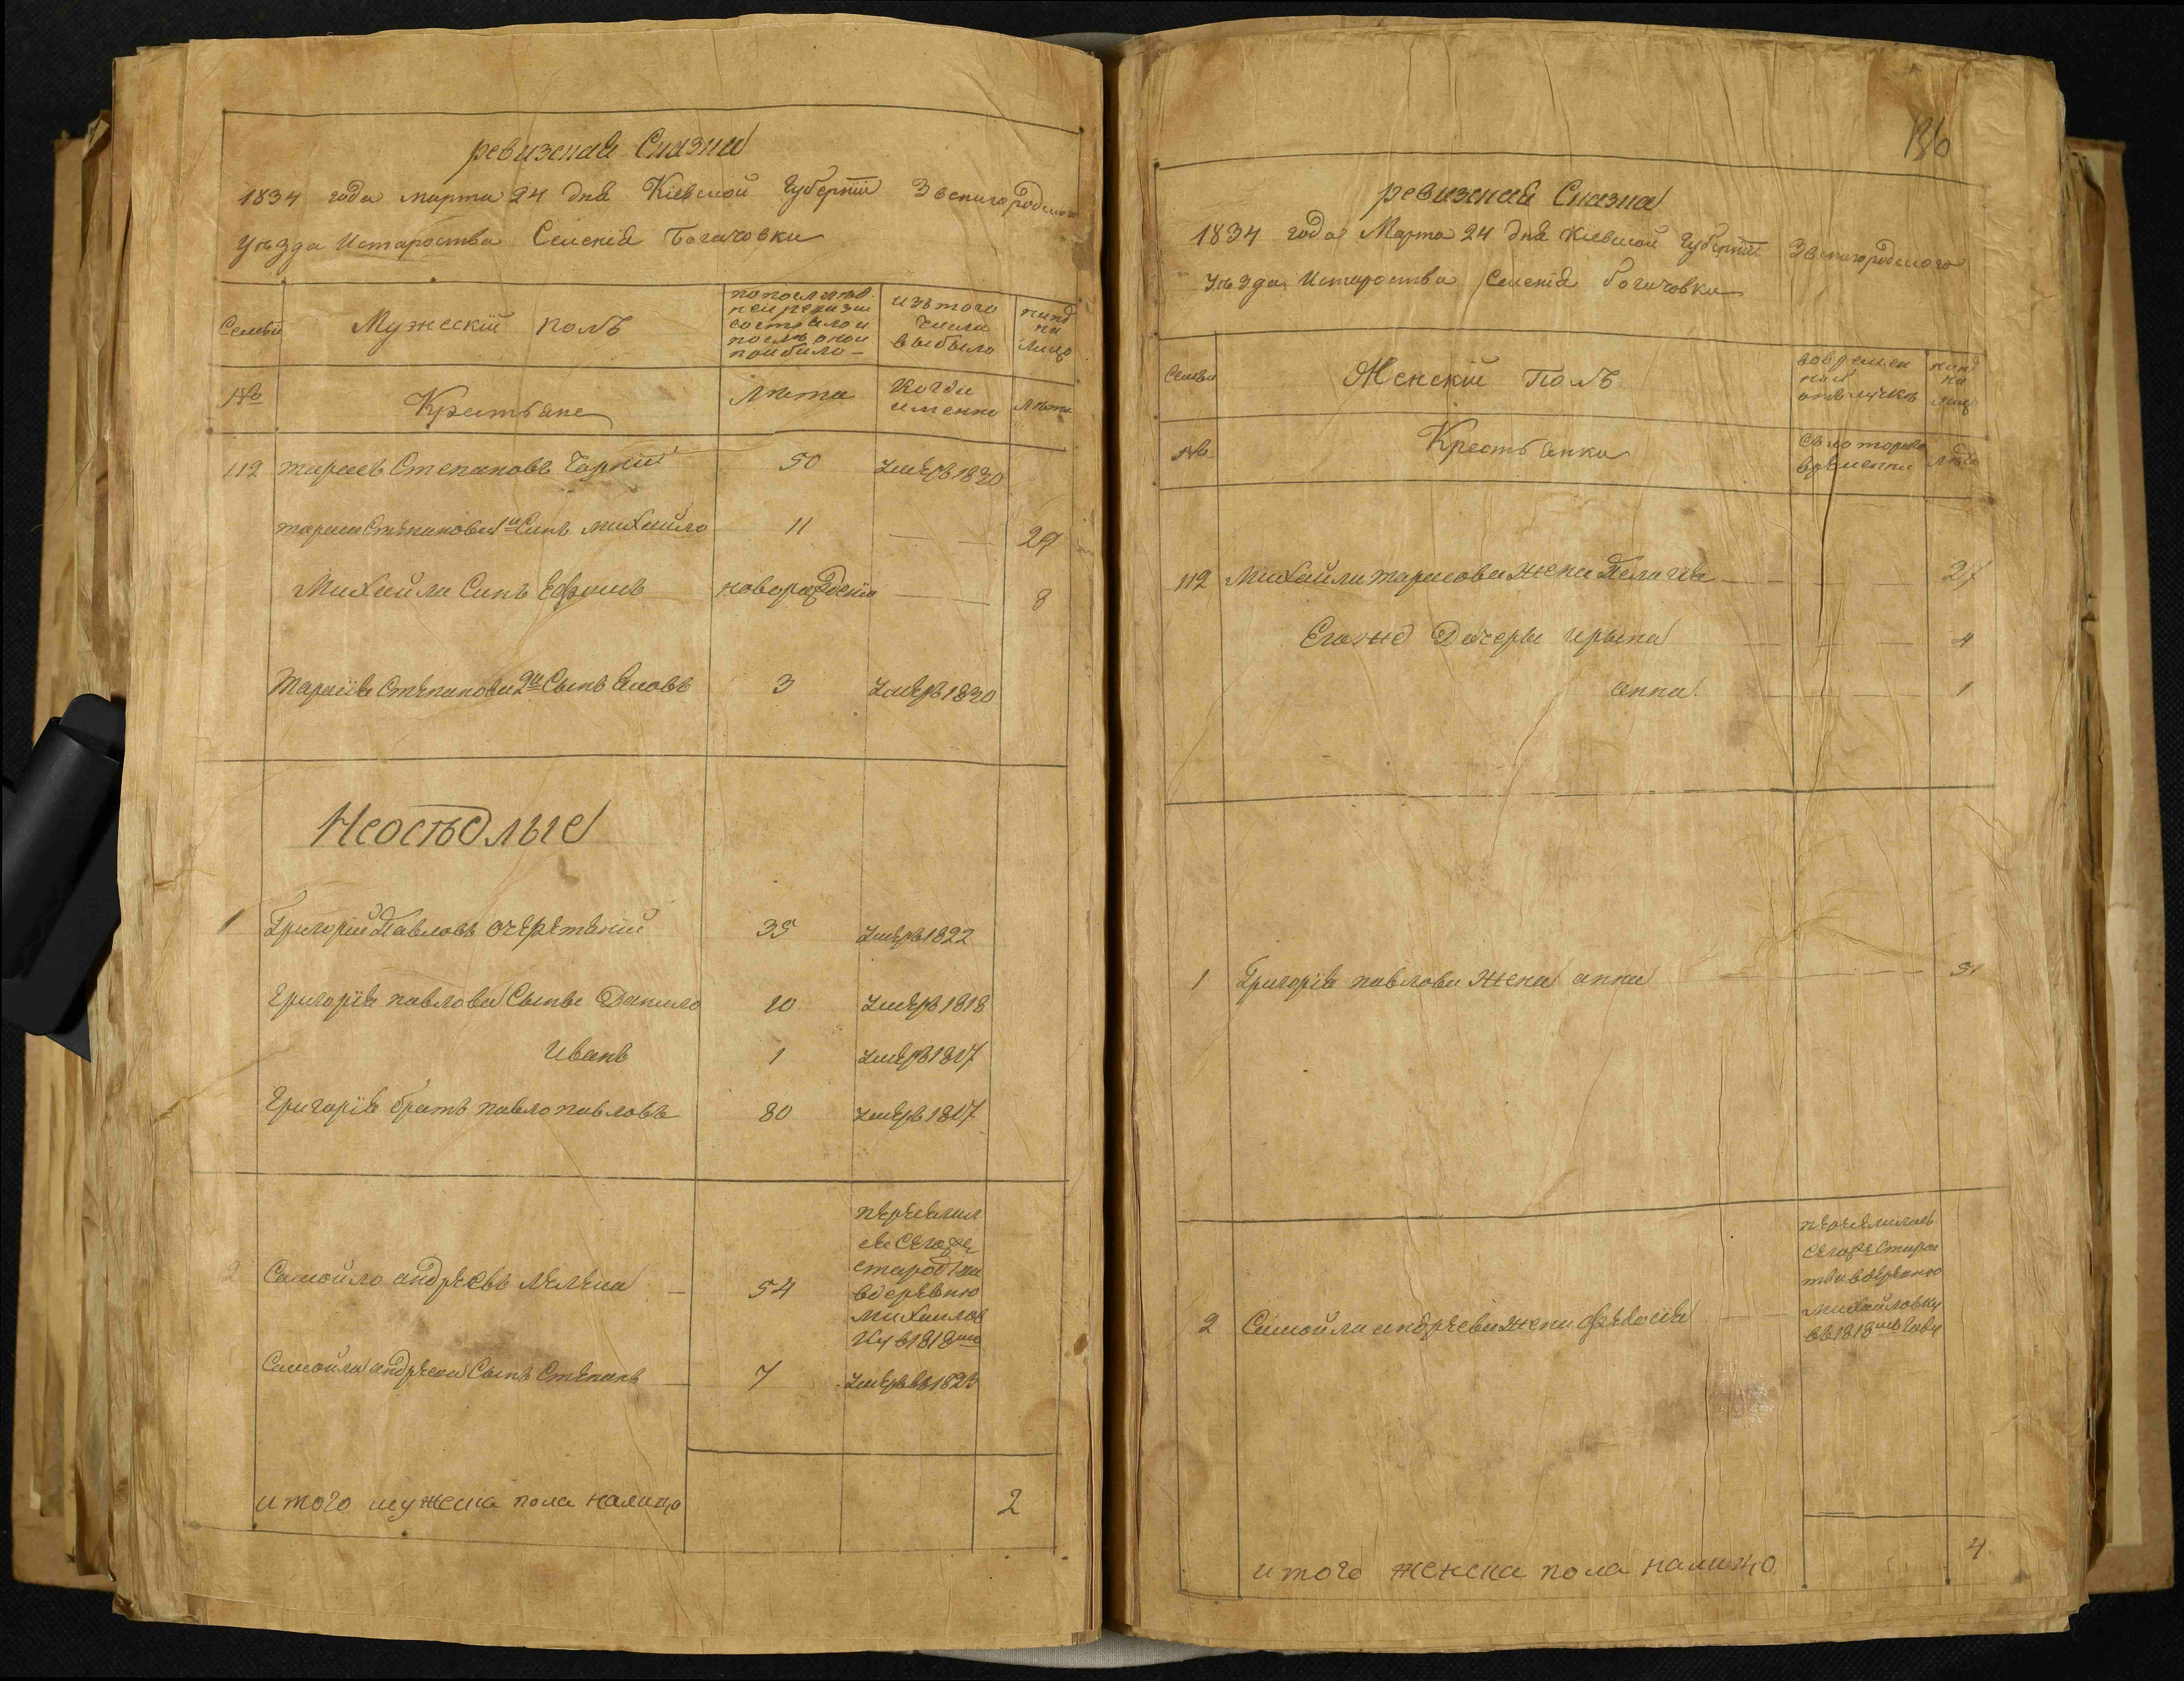 ревизская Сказка
1834 года марта 24 дня Кіевской Губерніи Звенигородского
уѣзда Истароства Селенія Богачовки
Семьи
Мужескій полъ
попослѣд
ней ревизіи
состояло и
послѣ оной
прибыло
изътого
числа
выбыло
нынѣ
на
лицо
№
Крестьяне
Лѣта
Когда
именно
Лѣта
112 тарасъ Степановъ Чорній 50 умеръ 1830
тараса Степанова 1й Синъ михайло 11 29
Михайли Синъ Ефимъ новорожденій 8
Тарасія Степанова 2й Сынъ Яковъ 3 умеръ 1830
Неосѣдлые
1 Григорій Павловъ очеретяній 35 умеръ 1822
Григорія павлова Сыны Данило 10 умеръ 1818
иванъ 1 умеръ 1817
Григорія братъ павло павловъ 80 умеръ 1817
2 Самойло андреевъ 54
переселил
ся Сегоже
староства
вдеревню
михайлов
ку в 1818мъ
Самойла андреева Сынъ Степанъ 7 умеръ въ 1823
итого мужеска пола налицо 2
136
ревизская Сказка
1834 года Марта 24 дня Киевской Губерніи Звенигородского
Уѣзда Истароства Селенія богачовки
Семьи
Женскій Полъ
вовремен
ной
отлучкѣ
нынѣ
на
лицо
№
Крестьянки
Съ которого
времени
лѣта
112 Михайли тарасова жена Пелагія 27
Егожо Дочеры ирына 4
анна 1
1 Григорія павлова жена анна 51
2 Самойла андреева жена февросія
переселилась
Сегоже Старос
тва вдеревню
михайловку
въ 1818мъ Году
итого женска пола налицо 4